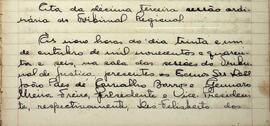 Ata da décima terceira sessão ordi
nária do Tribunal Regional
Às nove horas do dia trinta e um
de outubro de mil novecentos e quaren
ta e seis, na sala das sessões do Tribu
nal de Justiça, presentes os Exmos Srs
João Paes de Carvalho Barros e Genaro
Freire, Presidente e Vice-Presiden
te, respectivamente, Des. Felisberto dos